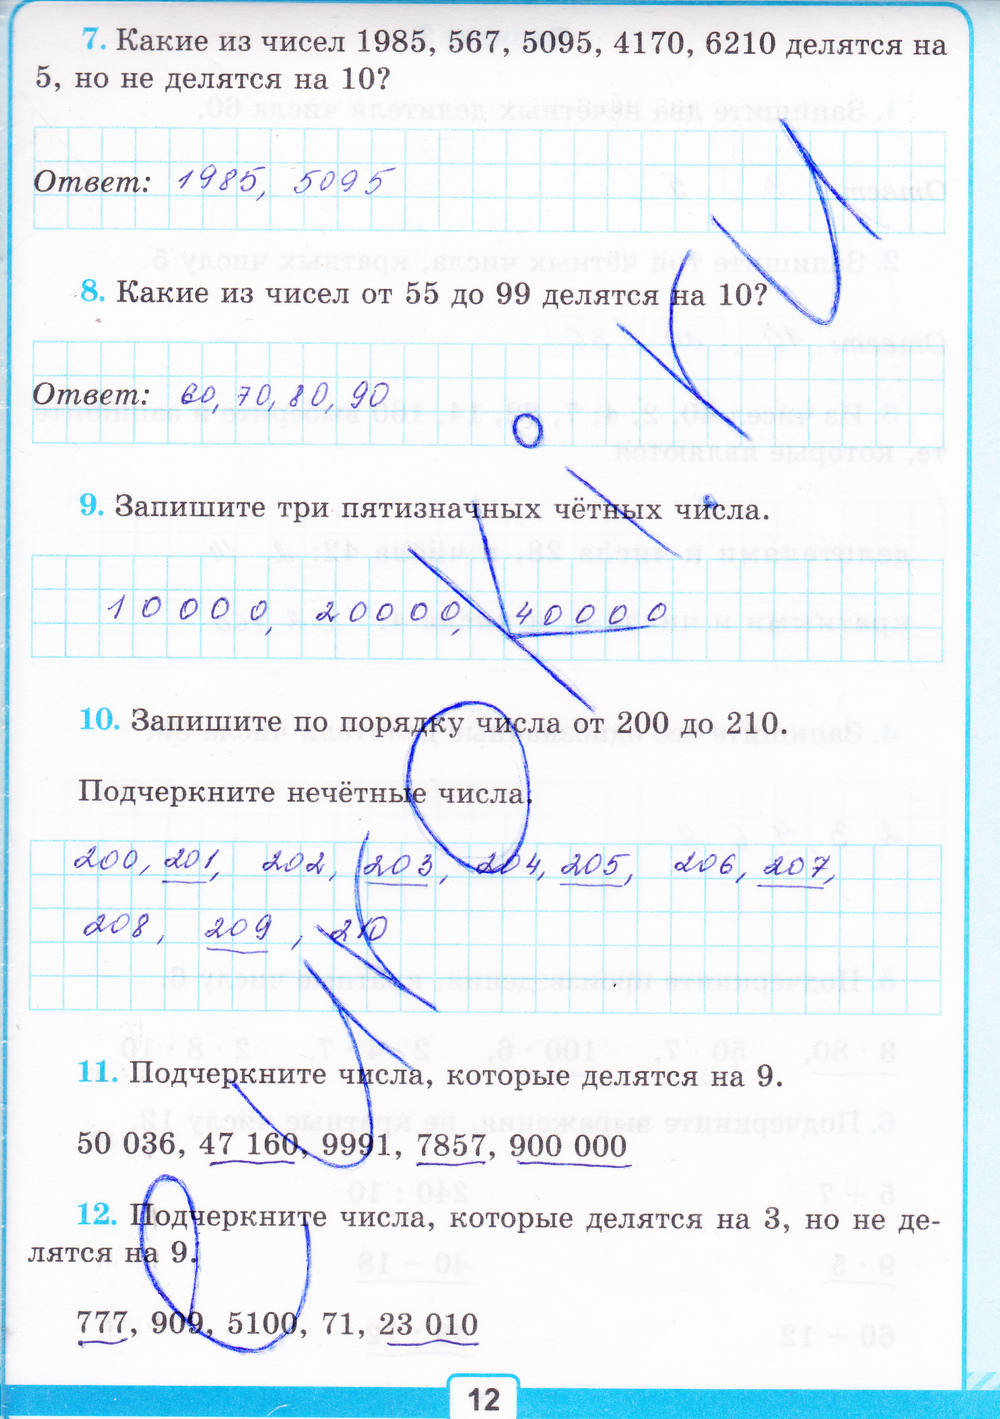 7. Какие из чисел 1985, 567, 5095, 4170, 6210 делятся на
5, но не делятся на 10?
Ответ: 1985, 5095
8. Какие из чисел от 55 до 99 делятся на 10?
Ответ: 60, 70, 80, 90
9. Запишите три пятизначных чётных числа.
10000, 20000, 40000
10. Запишите по порядку числа от 200 до 210.
Подчеркните нечётные числа.
200, 201, 202, 203, 204, 205, 206, 207,
208, 209, 210
11. Подчеркните числа, которые делятся на 9.
50 036, 47 160, 9991, 7857, 900 000
12. Подчеркните числа, которые делятся на 3, но не де-
лятся на 9.
777, 909, 5100, 71, 23 010
12